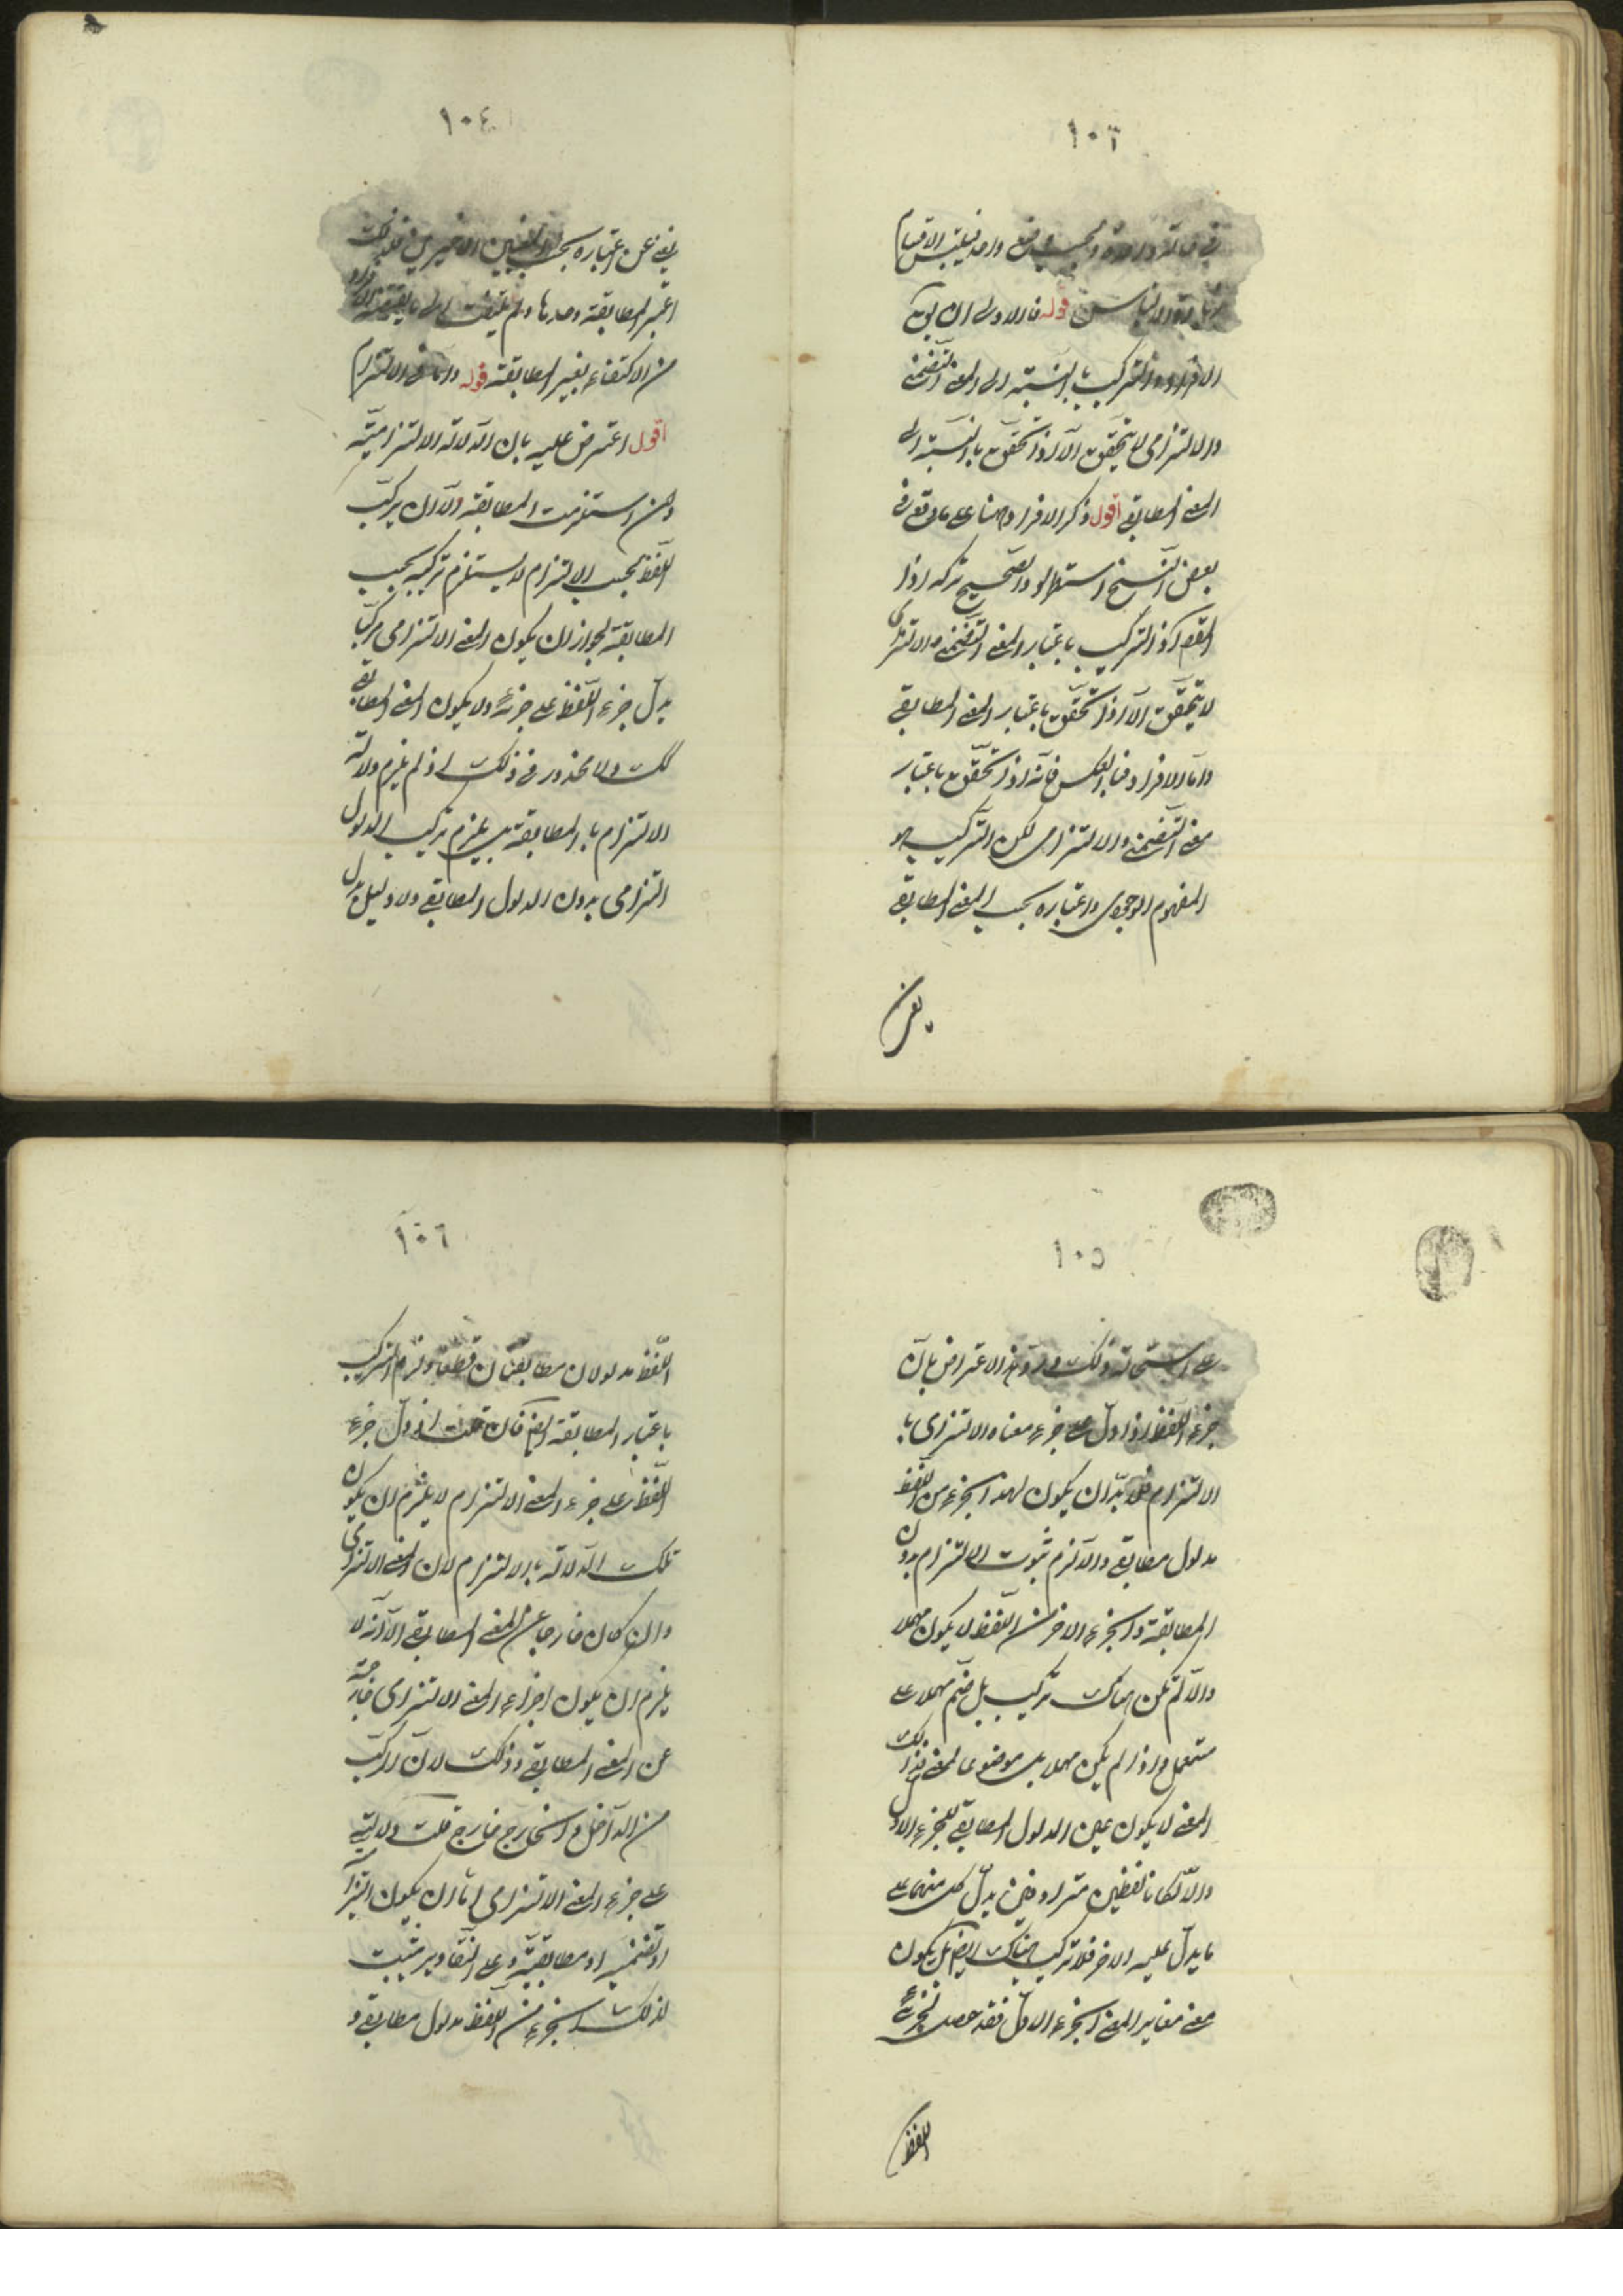 ١٠٣
في حالة واحدة وبحسب وضع واحد فيلتبس الاقسام
قوله فالاولى ان يق
الافراد والتركيب بالنسبة الى المعنى التضمنى
والالتزامى لا يتحقق الا اذا تحقق بالنسبة الى
المعنى المطابقى اقول ذكر الافراد ههنا على ما وقع فى
بعض النسخ استطراد والصحيح تركه اذ
المقصود ان التركيب باعتبار المعنى التضمنى والالتزامى
لا يتحقق الا اذا تحقق باعتبار المعنى المطابقى
واما الافراد فبالعكس فانه اذا تحقق باعتبار
معنى التضمنى والالتزامى لكن التركيب هو
المفهوم الوجودى واعتباره بحسب المعنى المطابقى
يغنى
١٠٤
يغنى عن اعتباره بحسب المعنيين الاخيرين فلذلك
اعتبر المطابقة وحدها ولم يلتفت الى ما يقتضيه الافراد
من الاكتفاء بغير المطابقة قوله واما فى الالتزام
اقول اعترض عليه بان الدلالة الالتزامية
وان استلزمت المطابقة الا ان تركيب
اللفظ بحسب الالتزام لا يستلزم تركيبه بحسب
المطابقة لجواز ان يكون المعنى الالتزامى مركبا
يدل جزء اللفظ على جزئه ولا يكون المعنى المطابقى
كك ولا محذور فى ذلك اذ لم يلزم دلالة
الالتزام بالمطابقة بل يلزم تركيب المدلول
التزامى بدون المدلول المطابقى ولا دليل يدل
١٠٥
على استحالة ذلك ورد هذا الاعتراض بان
جزء اللفظ اذا دل على جزء معناه الالتزامى با
الالتزام فلا بد ان يكون لهذا الجزء من اللفظ
مدلول مطابقى والا لزم ثبوت الالتزام بدون
المطابقة والجزء الاخر من اللفظ لا يكون مهملا
والا لم يكن هناك تركيب بل ضم مهمل على
مستعمل واذا لم يكن مهملا بل موضوعا لمعنى فذلك
المعنى لا يكون عين المدلول المطابقى للجزء الاول
والا لكانا لفظين مترادفين يدل كل منهما على
ما يدل عليه الاخر فلا تركيب هناك ايضا بل يكون
معنى مغاير المعنى الجزء الاول فقد حصل لجزئى
اللفظ
١٠٦
اللفظ مدلولان مطابقيان قطعا ولزم التركيب
باعتبار المطابقة ايضا فان قلت اذا دل جزء
اللفظ على جزء المعنى الالتزام لا يلزم ان يكون
تلك الدلالة بالالتزام لان المعنى الالتزامى
وان كان خارجا عن المعنى المطابقى الا انه لا
يلزم ان يكون اجزاء المعنى الالتزامى خارجة
عن المعنى المطابقى وذلك لان المركب
من الداخل والخارج خارج قلت دلالته
على جزء المعنى الالتزامى اما ان يكون التزاما
او تضمنية او مطابقية وعلى التقادير يثبت
لذلك الجزء من اللفظ مدلول مطابقى و